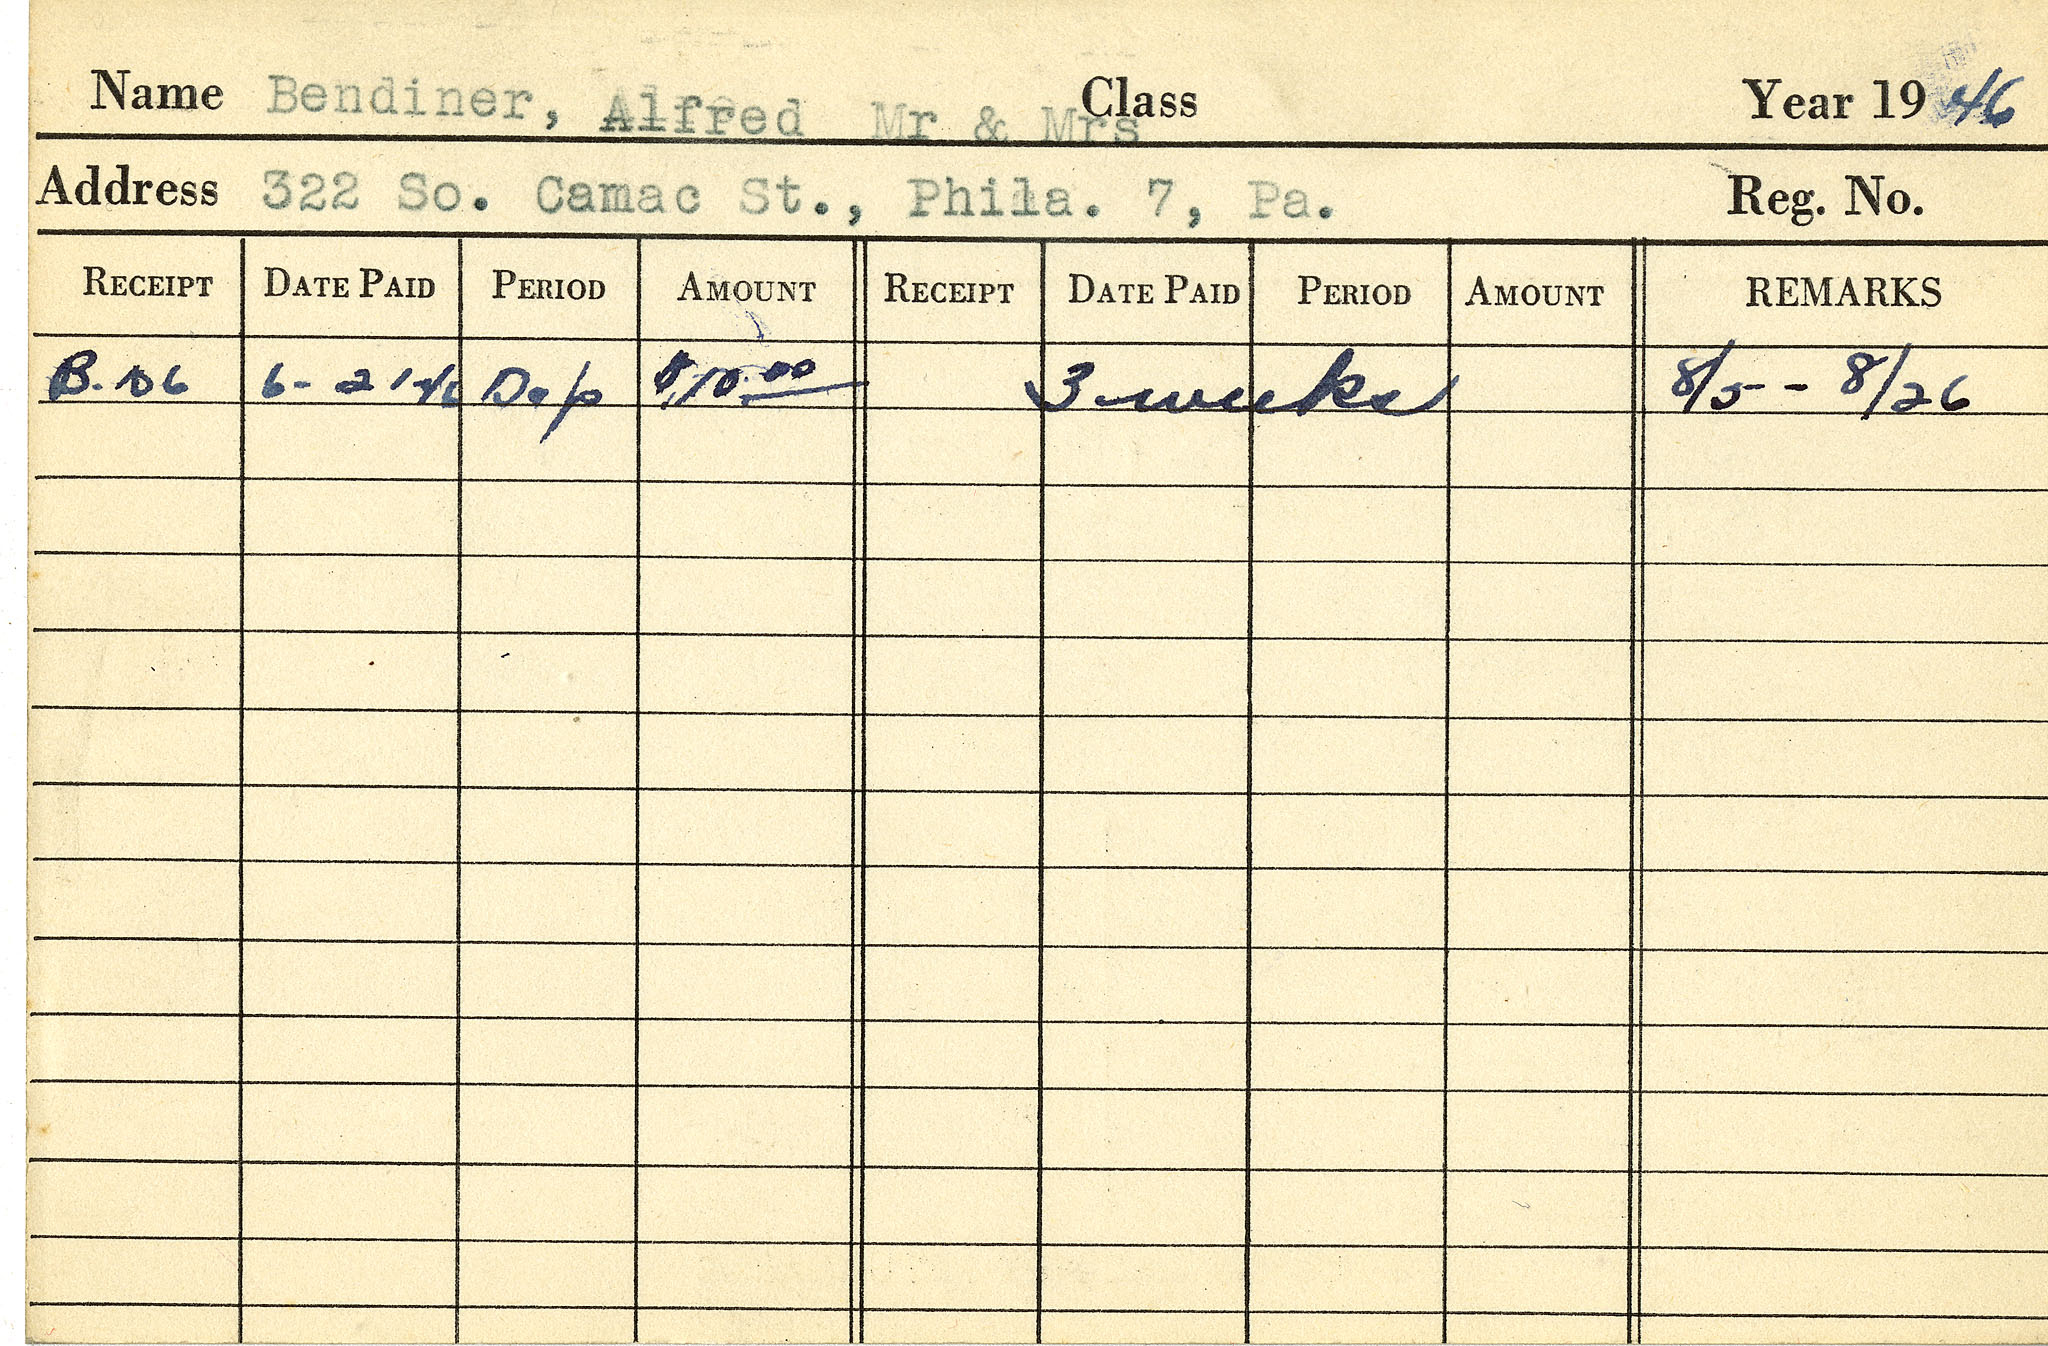 Name Bendiner, Alfred Mr & Mrs Class Year 1946
Address 322 So. Camac St., Phila. 7, Pa. Reg. No.
RECEIPT DATE PAID PERIOD AMOUNT RECEIPT DATE PAID PERIOD AMOUNT REMARKS
B. 106 6-21-46 Dep $10.00 3 weeks 8/5 - 8/26